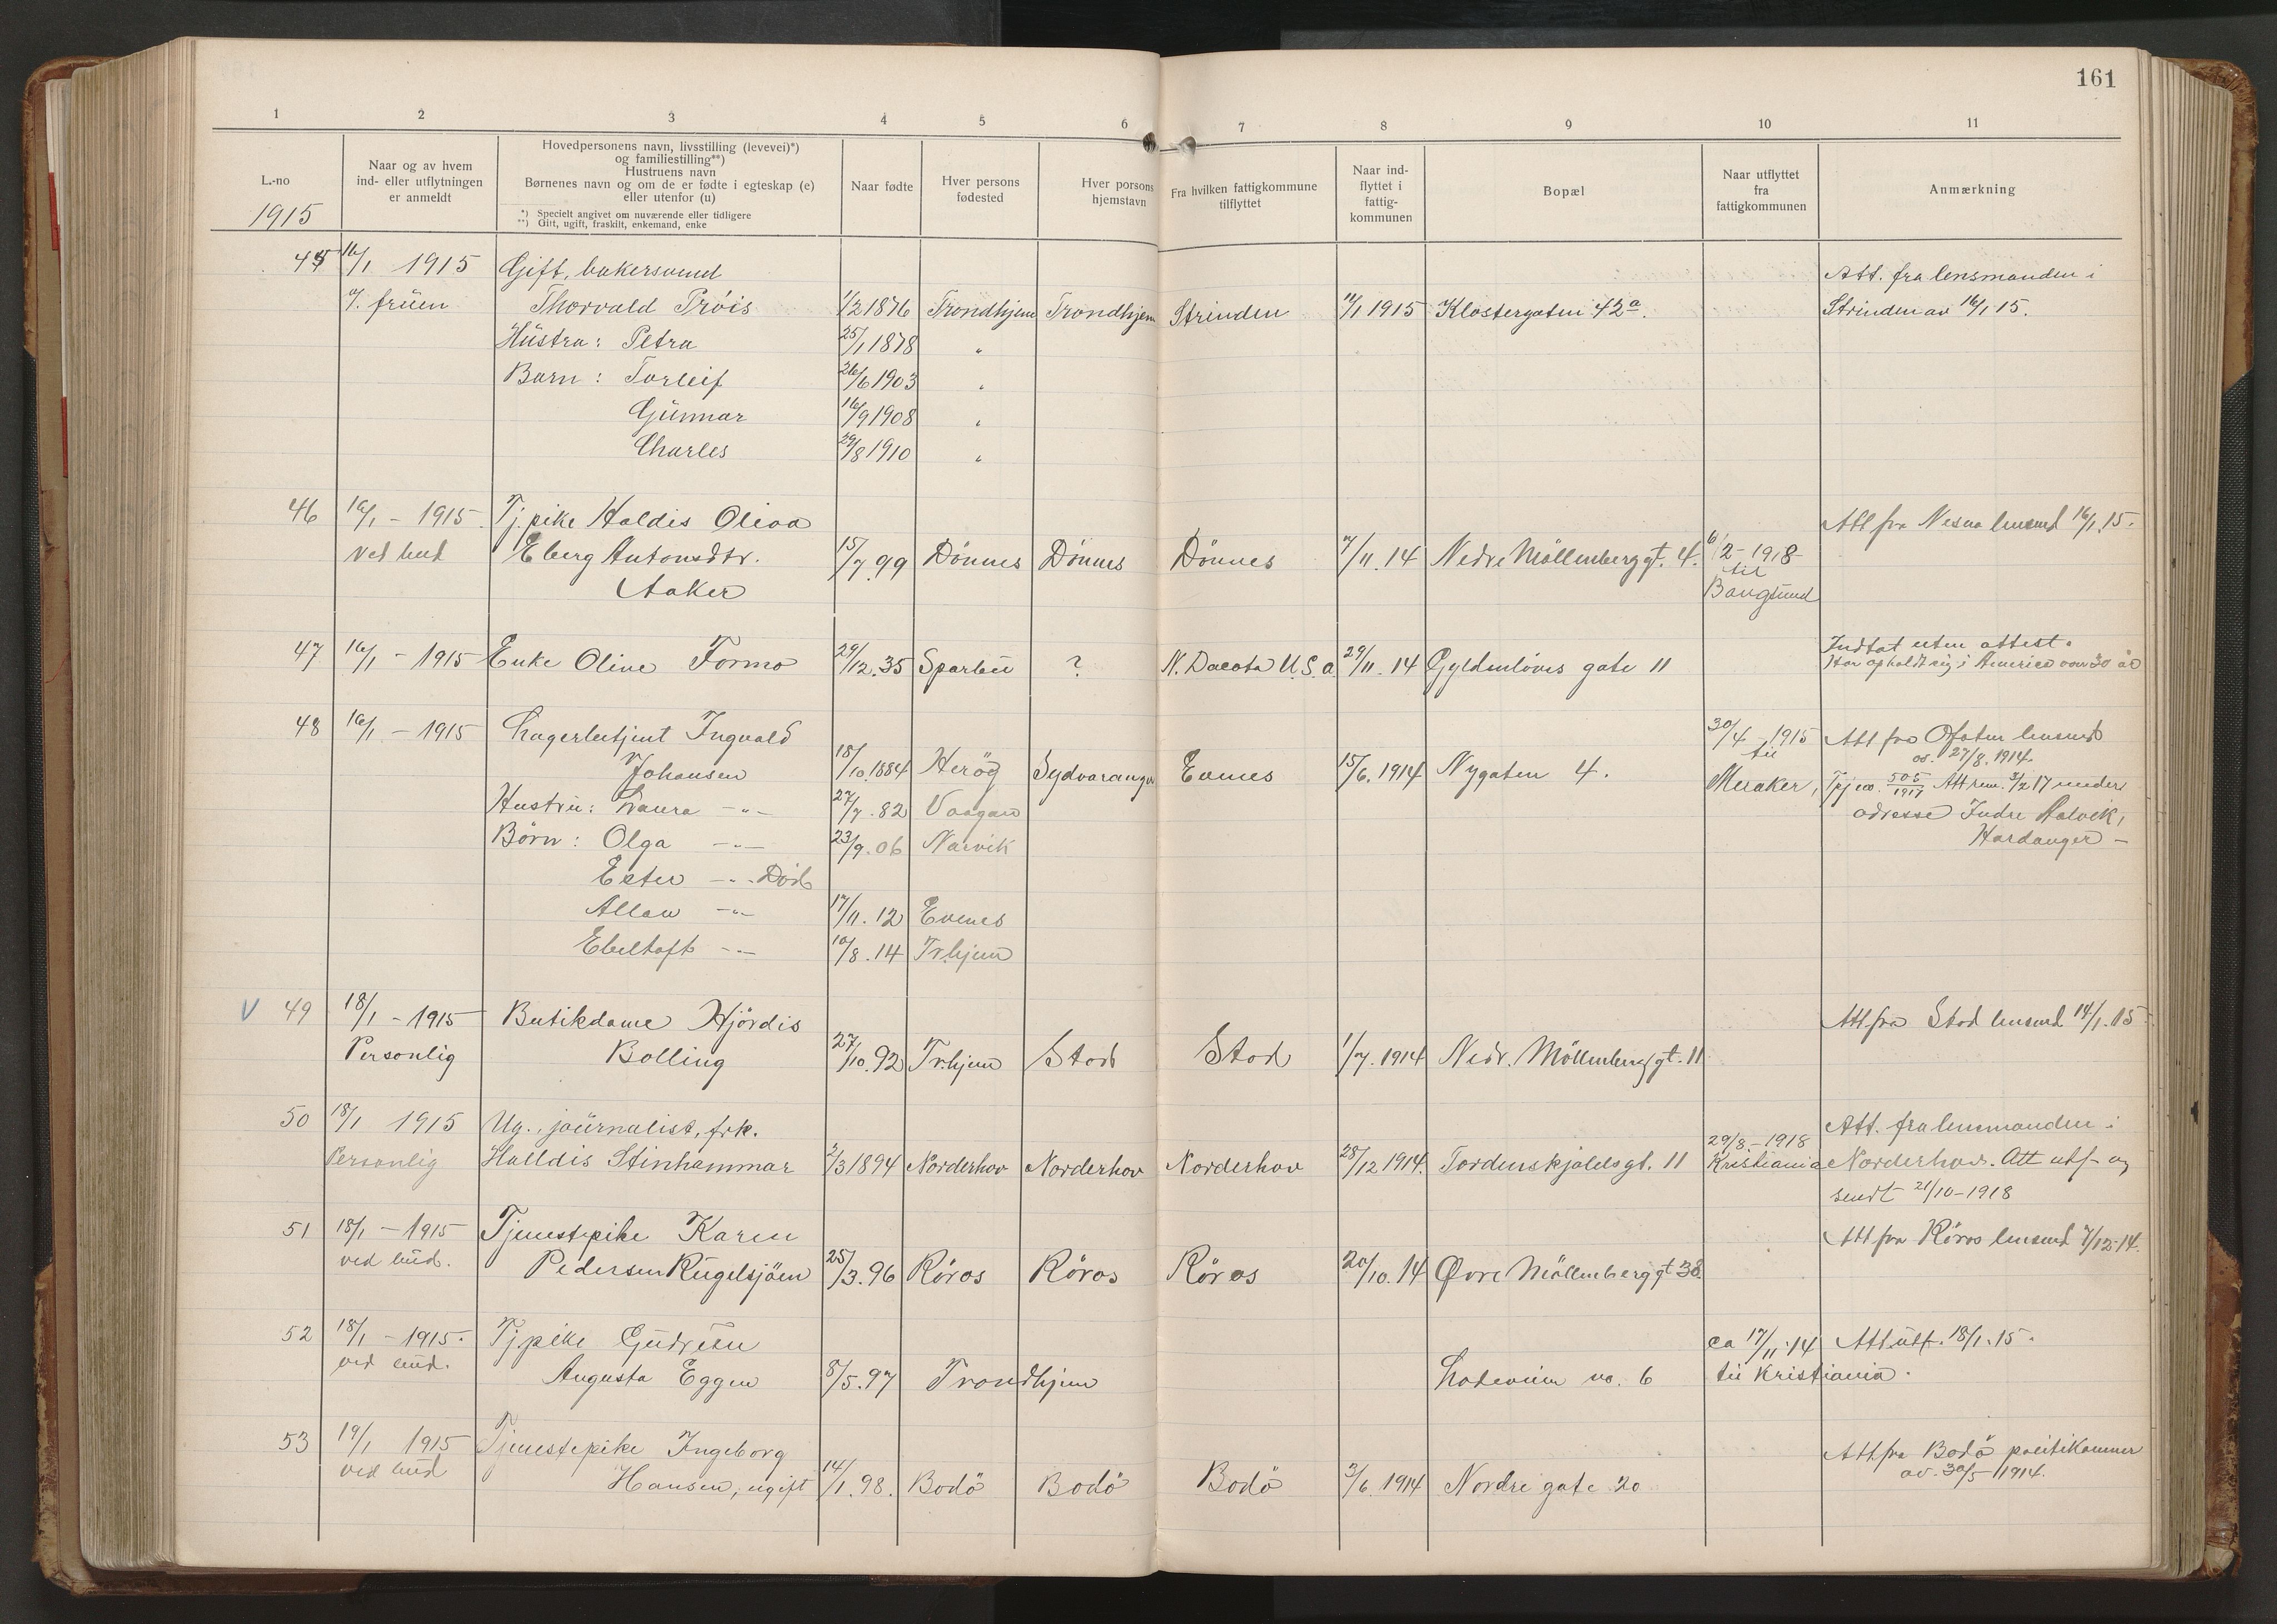 161
1 2 3 4 5 6 7 8 9 10 11
L.-no
1915
Naar og av hvem
ind- eller utflytningen
er anmeldt
Hovedpersonens navn, livsstilling (levevei)*)
og familiestilling**)
Hustruens navn
Børnenes navn og om de er fødte i egteskap (e)
eller utenfor (u)
*) Specielt angivet om nuværende eller tidligere
**) Gift, ugift, fraskilt, enkemand, enke
Naar fødte
Hver persons
fødested
Hver porsons
hjemstavn
Fra hvilken fattigkommune
tilflyttet
Naar ind-
flyttet i
fattig-
kommunen
Bopæl
Naar utflyttet
fra
fattigkommunen
Anmærkning
45 16/1 1915 Gift, bakersvend Att. fra lensmanden i
v/. frúen Thorvald Próis 1/2 1876 Trondhjem Trondhjem Strinden 1915 Klostergaten 42a. Strinden av 16/1 15.
Hústru: Petra 25/1 1878 "
Barn: Torleif 26/6 1903 "
Gúnnar 16/9 1908 "
Charles 29/8 1910 "
46 16/1 - 1915. Tj.pike Haldis Oliva Att fra Nesna lensmd 16/1.15.
ved bud Eberg Antonsdtr. 15/7.99 Dönnes Dönnes Dönnes 7/11.14 Nedre Möllenberg gt. 4. 6/2-1918-
Aaker til
Bangsund
47 16/1 - 1915 Enke Olive Formo 29/12.35 Sparbú ? N. Dacota U.S.a. 29/11.14 Gyldenlöves gate 11 Indtat uten attest.
Har opholdt sig i America over 30 år
48 16/1 - 1915 Lagerbetjent Ingvald 30/4 - 1915 Att fra Ofoten lensmd
Johansen 18/10.1884 Heröy Sydvaranger Evenes 15/6.1914 Nygaten 4. til av 27/8.1914.
Meraker, Tpj no. 505/1917 Att rem. 3/2 17 under
Hustrú: Laura -"- 27/7.82 Vaagan adresse Indre Aalvik,
Börn: Olga -"- 23/9.06 Narvik Hardanger -
Ester -"- Död
Allan -"- 17/11.12 Evenes
Ebeltoft -"- 10/8.14 Tr.hjem
V 49 18/1 - 1915 Butikdame Hjördis Att fra Stod lensmd 14/1.15
Personlig Bolling 27/10.92 Tr.hjem Stod Stod 1/7.1914 Nedr. Möllenberg gt. 11
50 18/1 1915 Ug., joúrnalist, frk. Att. fra lensmanden i
Personlig Halldis Stinhammar 2/3 1894 Norderhov Norderhov Norderhov 28/12 1914. Tordenskjoldsgt. 11 29/8-1918 Kristiania Norderhov. Att utf- og
sendt 21/10-1918
51 18/1 - 1915 Tjenestepike Karen Att fra Röros lensmd 7/12.14.
ved búd. Pedersen Rúgelsjöen 25/3.96 Röros Röros Röros 20/10.14 Øvre Möllenberg gt 38.
52 18/1 - 1915. Tj.pike Gúdrún ca 17/11.14 Att útf. 18/1.15.
ved búd. Augusta Eggen 8/5.97 Trondhjem Ladeveien no. 6 til Kristiania.
53 19/1 1915 Tjenestepike Ingeborg Att fra Bodö politikammer
ved búd Hansen, ugift 14/1.98. Bodö Bodö Bodö 3/6.1914 Nordre gate 20 av 30/5 1914.